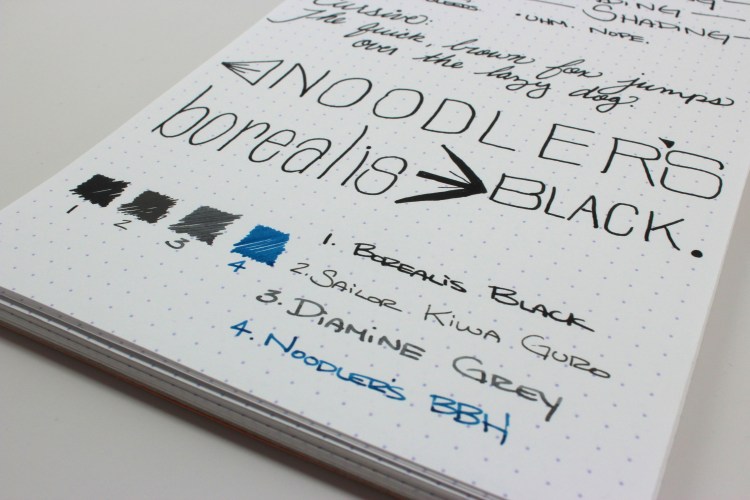 SHADING
Cursive:
• UHM. NOPE.
The quick, brown fox jumps
over the lazy dog.
NOODLER'S
borealis → BLACK.
1 2 3 4
1. BOREALIS BLACK
2. SAILOR KIWA GURO
3. DIAMINE GREY
4. NOODLER'S BBH